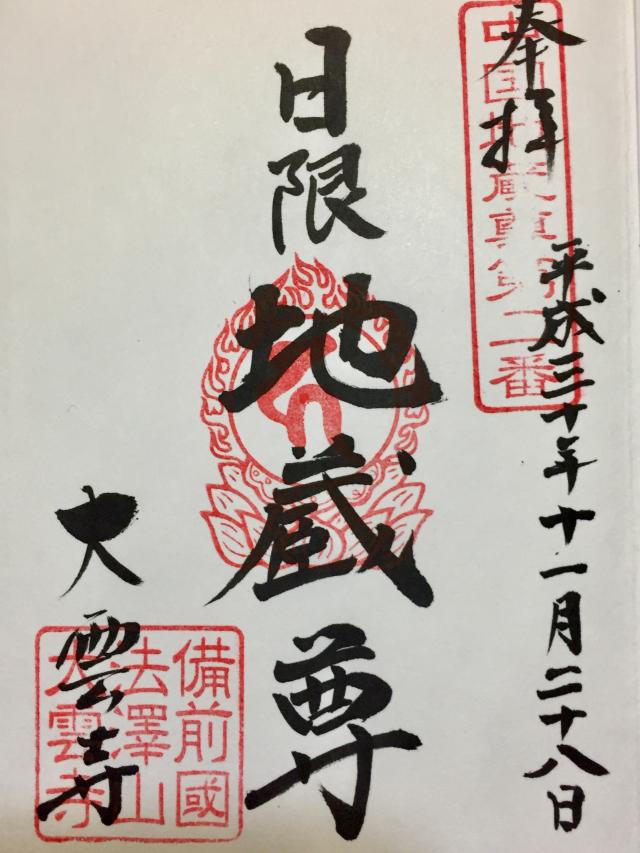 奉拝
中国地蔵尊第二番
平成三十年十一月二十八日
日限
地蔵尊
大雲寺
備前國
法澤山
大雲寺